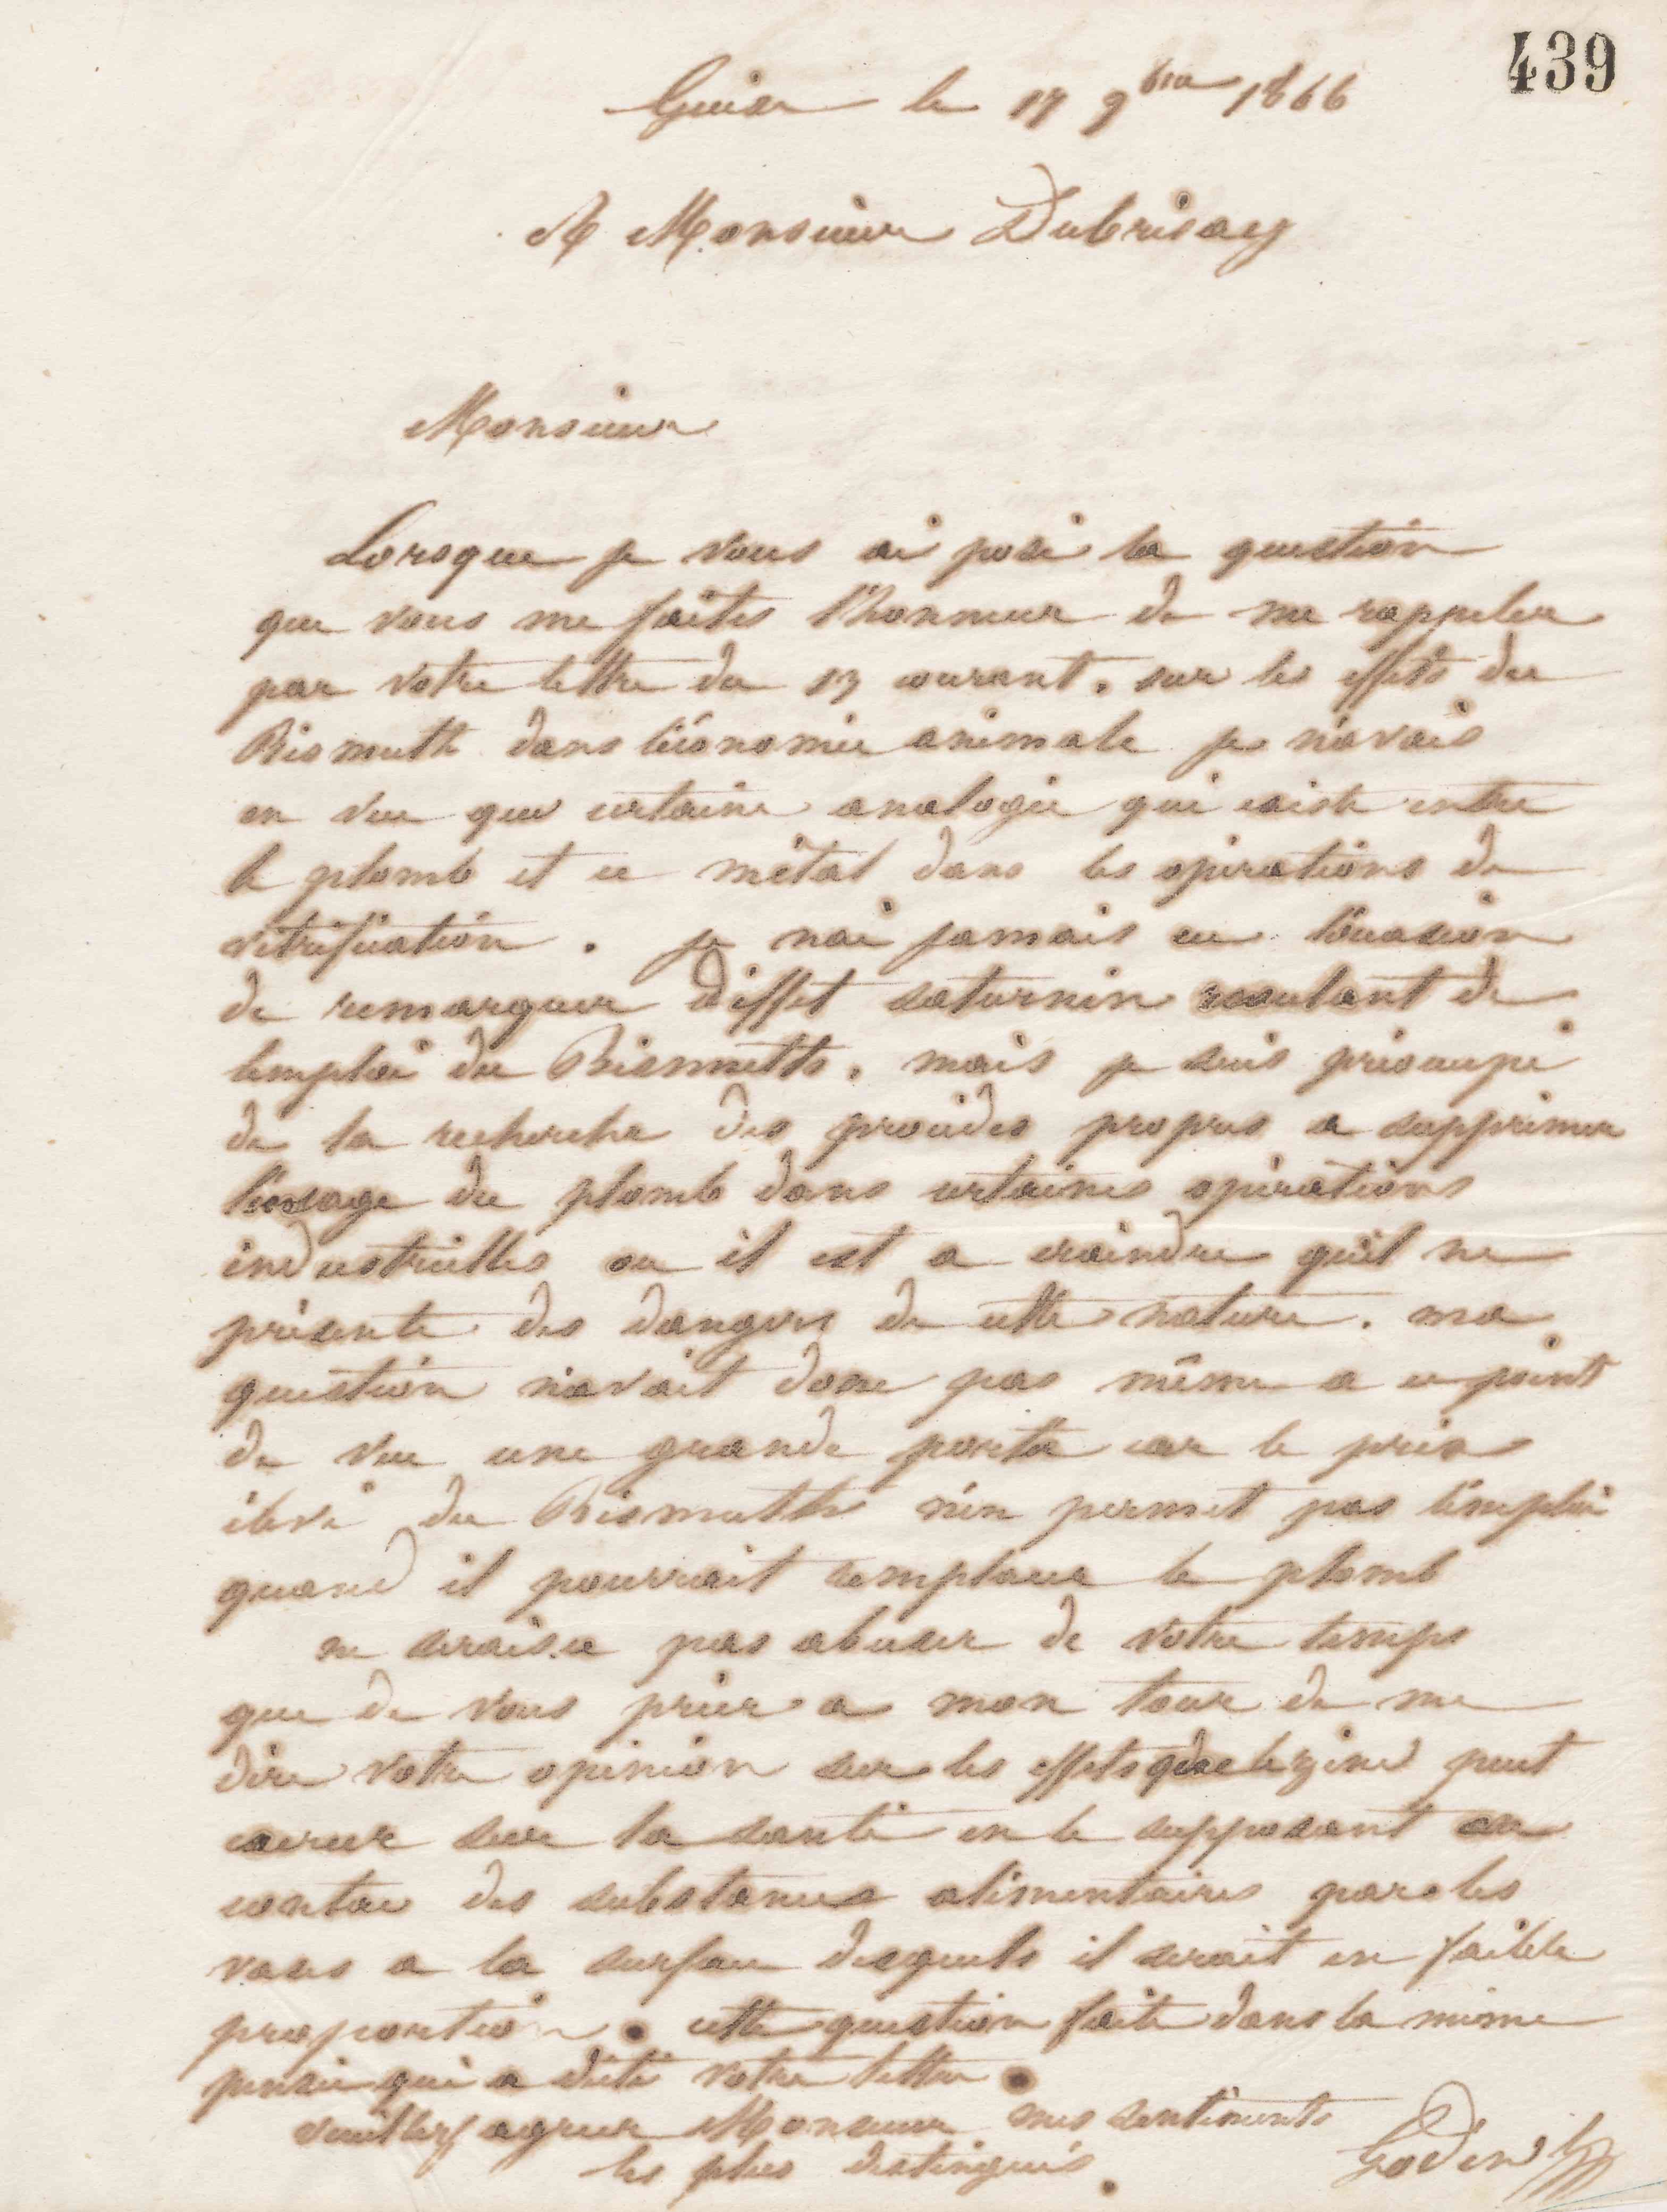 439
Guise le 17 9bre 1866
A Monsieur Dubrisay
Monsieur
Lorsque je vous ai posé la question
que vous me faites l'honneur de me rappeler
par votre lettre du 13 courant. sur les effets du
Bismuth dans l'économie animale je n'avais
en vue que certaine analogie qui existe entre
le plomb et ce métal dans les opérations de
vitrification. je n'ai jamais eu l'occasion
de remarquer d'effet saturnin resultant de
l'emploi du Bismuth. mais je suis préoccupé
de la recherche des procédés propres a supprimer
l'usage du plomb dans certaines opérations
industrielles ou il est a craindre qu'il ne
présente des dangers de cette nature. ma
question n'avait donc pas même a ce point
de vue une grande portée car le prix
élevé du Bismuth n'en permet pas l'emploi
quand il pourrait remplacer le plomb
ne serais-ce pas abuser de votre temps
que de vous prier a mon tour de me
dire votre opinion sur les effets que le zinc peut
exercer sur la santé en le supposant au
contac des substances alimentaires par les
vases a la surface desquels il serait en faible
proportion. cette question faite dans la même
pensée qui a dicté votre lettre.
veuillez agreer Monsieur mes sentiments
les plus distingués.
Godin